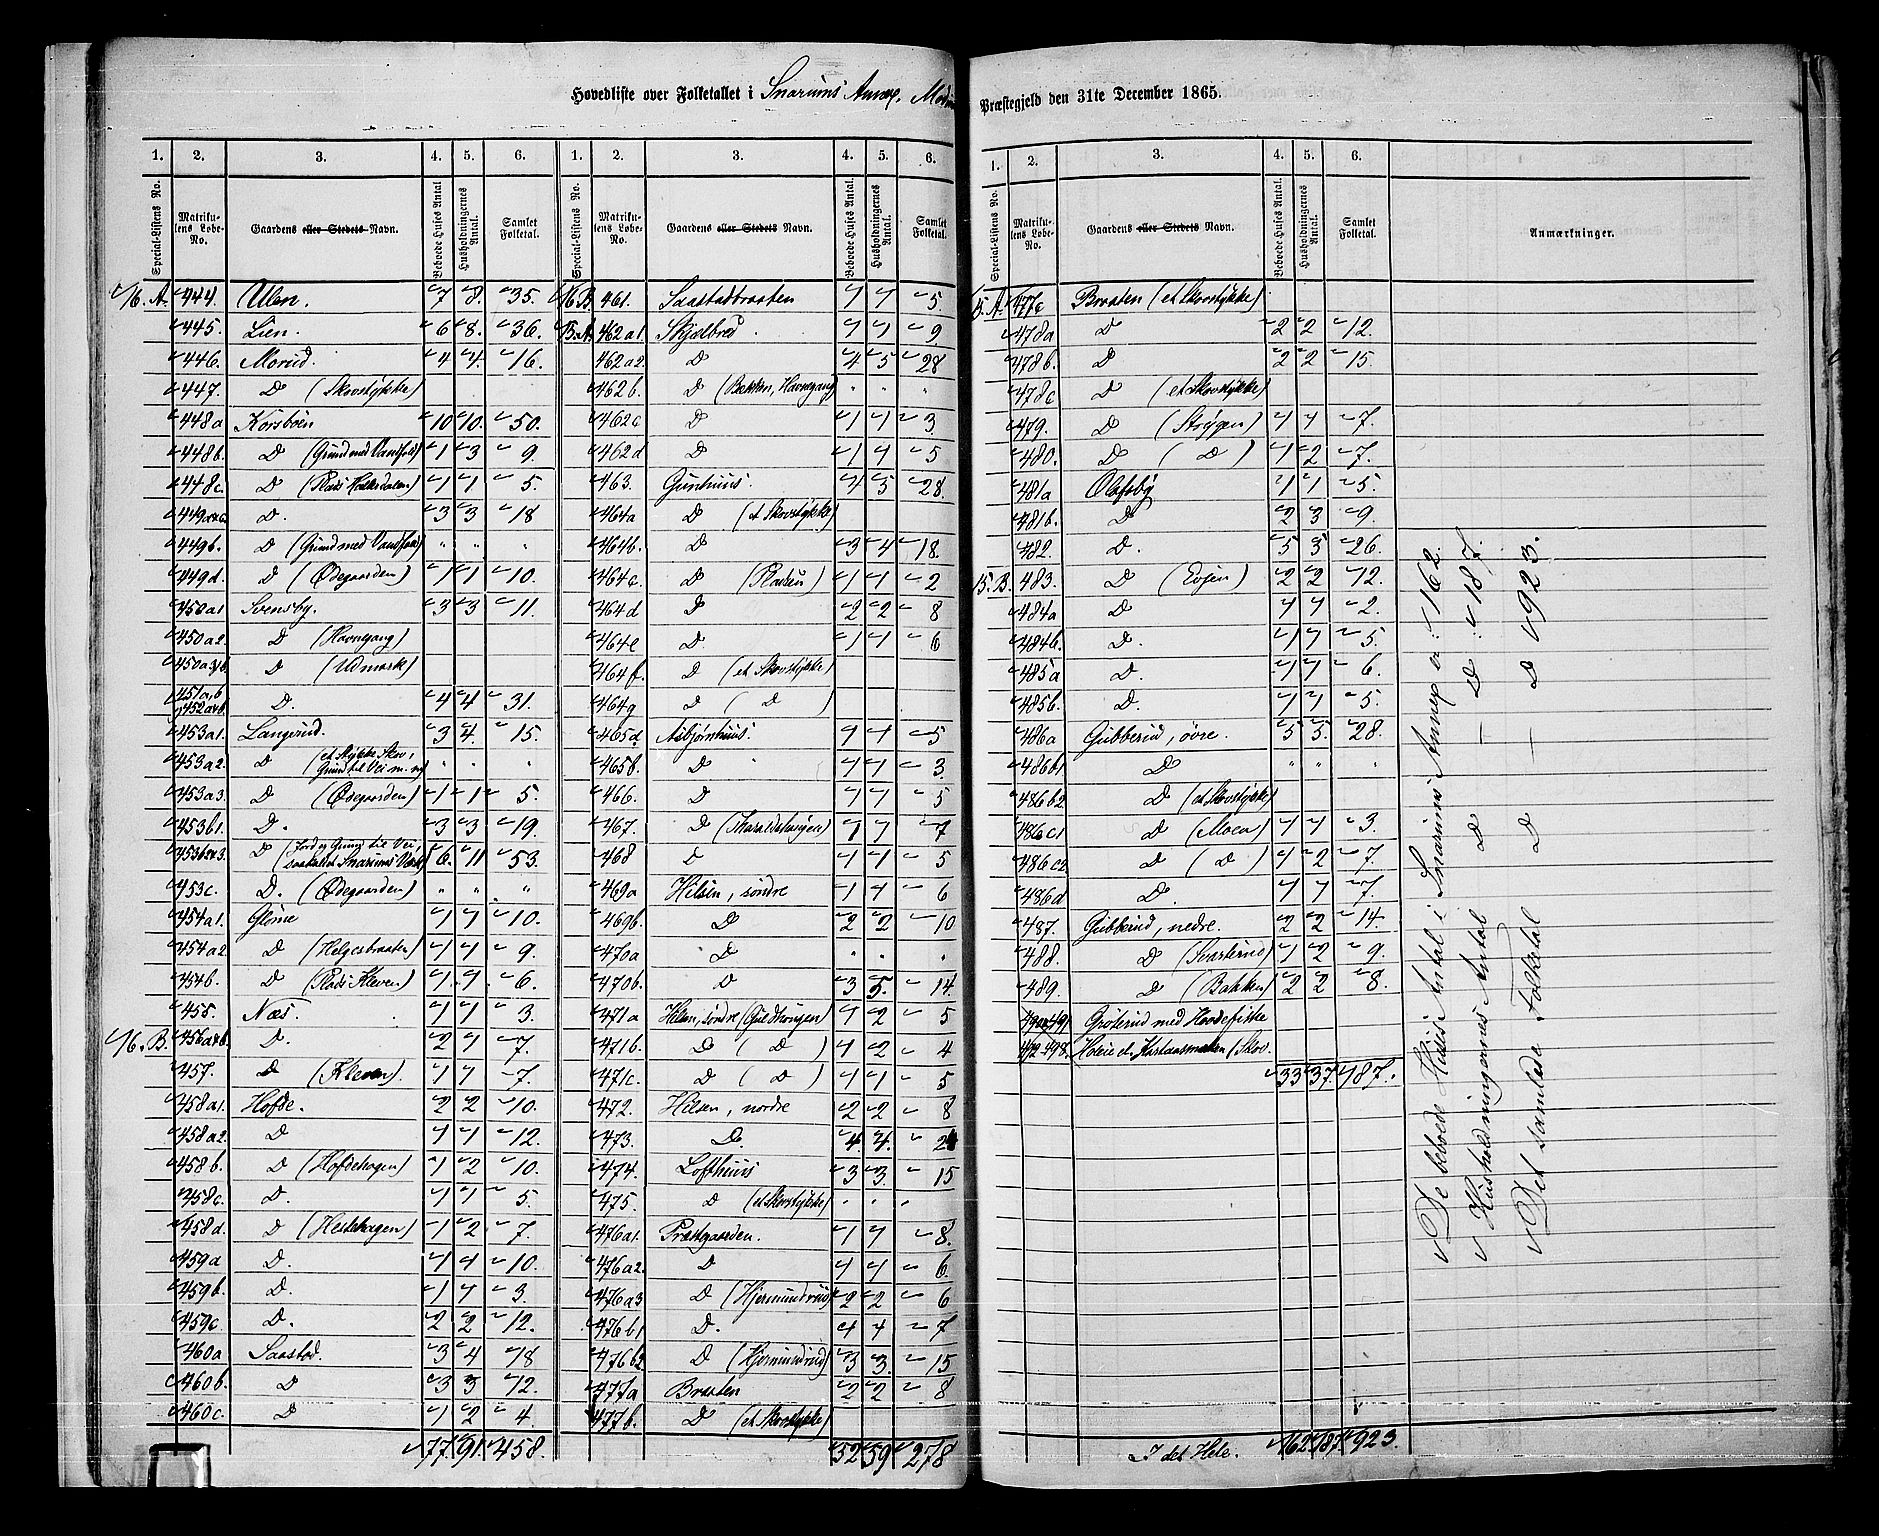 Hovedliste over Folketallet i Snarums Annex. Modums Præstegjeld den 31te December 1865.
1. 2. 3. 4. 5. 6. 1. 2. 3. 4. 5. 6.
Special-Listens No. Matrikulens Løbe-No. Gaardens eller Stedets Navn. Beboede Huses Antal. Husholdningernes Antal. Samlet Folketal. Special-Listens No. Matrikulens Løbe-No. Gaardens eller Stedets Navn. Beboede Huses Antal. Husholdningernes Antal. Samlet Folketal.
16. A. 444. Ulen. 7 8. 35. 16 B. 461. Saastadbraaten 1 1 5.
445. Lien. 6 8. 36. 15. A. 462a1. Skjælbred. 1 1 9
446. Morud. 4 4. 16. 462a2. D 4 5 28
447. D (Skovstykke) 462b. D (Bakken, Havnegang) " " "
448a Korsbøen 10 10. 50. 462c D 1 1 3.
448b. D (Grund med Vandfald) 1 3 9. 462d D 1 1 5
448c. D (Plads Holtesdalen) 1 1 5. 463. Gunhuus. 4 5 28.
449a+c D. 3 3 18 464a D (et Skovstykke)
449b. D (Grund med Vandfald) " " " 464b. D 3 4 18.
449d. D (Ødegaarden) 1 1 10. 464c. D (Plassen) 1 1 2
450a1 Svensby. 3 3 11. 464d D 2 2 8
450a2. D (Havnegang) 464e D. 1 1 6
450a3+b D (Udmark) 464f. D (et Skovstykke)
451a,b 452a+b. D. 4 4 31. 464g D (D)
453a1. Langerud. 3 4. 15. 465a Asbjørnhuus. 1 1 5
453a2. D (et Stykke Skov, Grund til Vei m. m.) " " " 465b. D 1 1 3.
453a3. D (Ødegaarden) 1 1 5. 466. D 1 1 5
453b1. D. 3 3 19. 467. D 1 1 7
453b2+3. D (Jord og Grund til Vei, saakaldet Snarums Værk) 6. 11 53. 468 D 1 1 5
453c. D. (Ødegaarden) " " " 469a Hilsen, søndre 1 1 6
454a1. Glome 1 1 10. 469b. D 2 2 10
454a2. D (Helgesbraaten) 1 1 9. 470a D " " "
454b. D (Plads Kleven) 1. 1. 6. 470b. D 3 5. 14.
455. Næs. 1 1 3. 471a Hilsen, søndre (Guldtvingen) 1 2 5
16. B. 456a+b. D. 2 1 7. 471b D (D) 1 2 4
457. D (Kleven). 1 1 7. 471c. D (D) 1 1 5
458a1. Hofde. 2 2 10. 472. Hilsen, nordre 2 2 8
458a2. D 1 1 12. 473. D. 4. 4. 24
458b. D (Hofdehagen) 1 2 10. 474. Lofthuus 3 3. 15
458c. D. 1 1 5. 475. D (et Skovstykke) " " "
458d. D (Hestehagen) 1 2 7. 476a1. Præstgaarden. 1 1 8.
459a D. 1 1 10. 476a2. D 1 1 6.
459b. D. 1 1 3. 476a3 D (Hjermundrud) 2 2 6
459c. D. 2 2 12. 476b1 D. 1 1 7
460a Saastad. 3 4 18 476b2 D (Hjermundrud) 3 3. 15
460b. D 3 3 12. 477a Braaten 2 2 8
460c. D 1 2 4. 477b. D (et Skovstykke)
77. 91. 458. 52 59 278
1. 2. 3. 4. 5. 6.
Special-Listens No. Matrikulens Løbe-No. Gaardens eller Stedets Navn. Beboede Huses Antal. Husholdningernes Antal. Samlet Folketal. Anmærkninger.
15. A. 477c Braaten (et Skovstykke)
478a D 2 2 12.
478b. D 2 2 15.
478c D (et Skovstykke)
479. D (Strygen) 1 1 7.
480. D (D) 1 2 7.
481a Olafsby 1 1 5.
481b. D 2 3 9.
482. D. 5 5 26.
15. B. 483. D (Evjen) 2 2 12.
484a D 1 1 2.
484b. D. 1 1 5.
485a D. 1 1 6.
485b. D. 1 1 5.
486a Gubberud, øvre. 5 5. 28.
486b1 D " " "
486b2 D (et Skovstykke)
486c1 D (Moen) 1 1 3.
486c2 D (D) 1 2 7.
486d D. 1 1 7
487. Gubberud, nedre. 2 2 14.
488. D (Svarterud) 1 2 9.
489. D (Bakken) 2 2 8.
490+491 Grøterud med Hovdefiske
33 37. 187.
I det Hele. 162 187. 923.
De beboede Huses Antal i Snarums Annex er: 162.
Husholdningernes Antal D — D: 187.
Det samlede Folketal D — D 923.